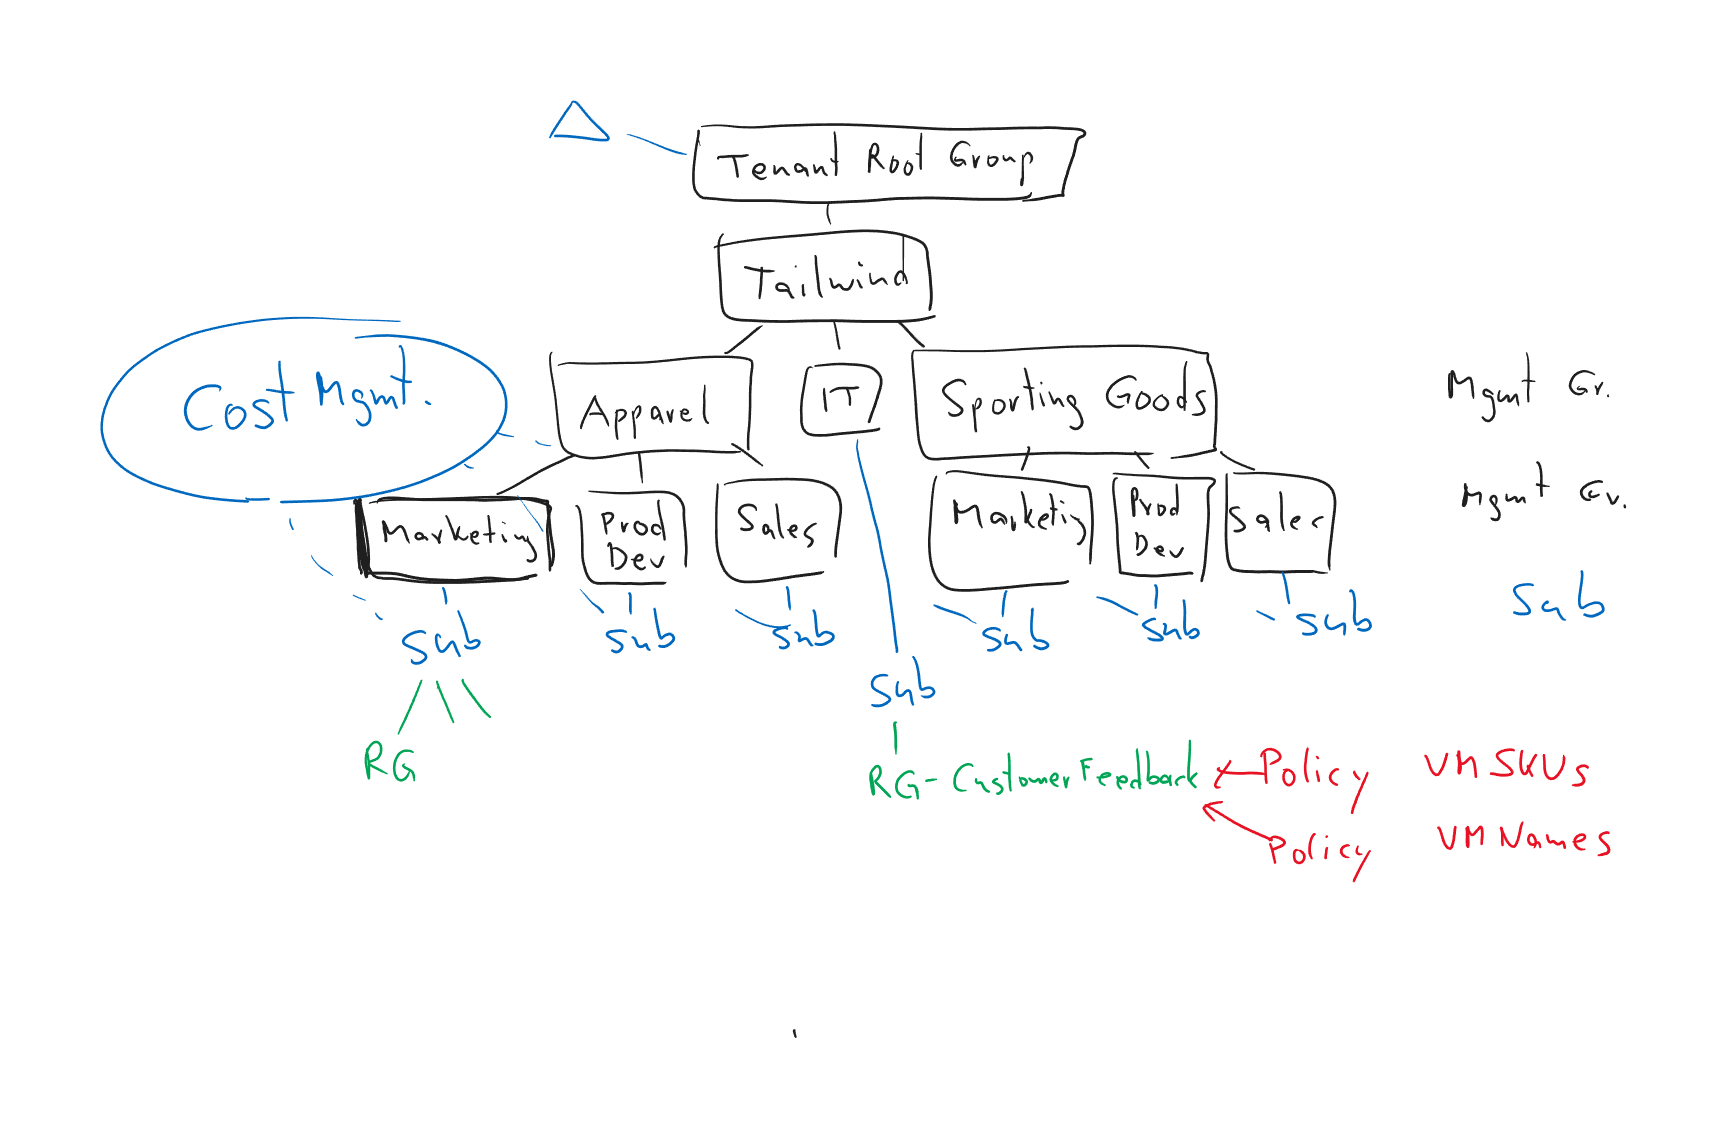 Tenant Root Group
Tailwind
Cost Mgmt.
Apparel
IT
Sporting Goods
Mgmt Gr.
Marketing
Prod
Dev
Sales
Marketing
Prod
Dev
Sales
Mgmt Gr.
Sub
Sub
Sub
Sub
Sub
Sub
Sub
Sub
RG
RG-CustomerFeedback
Policy
VM SKUs
Policy
VM Names